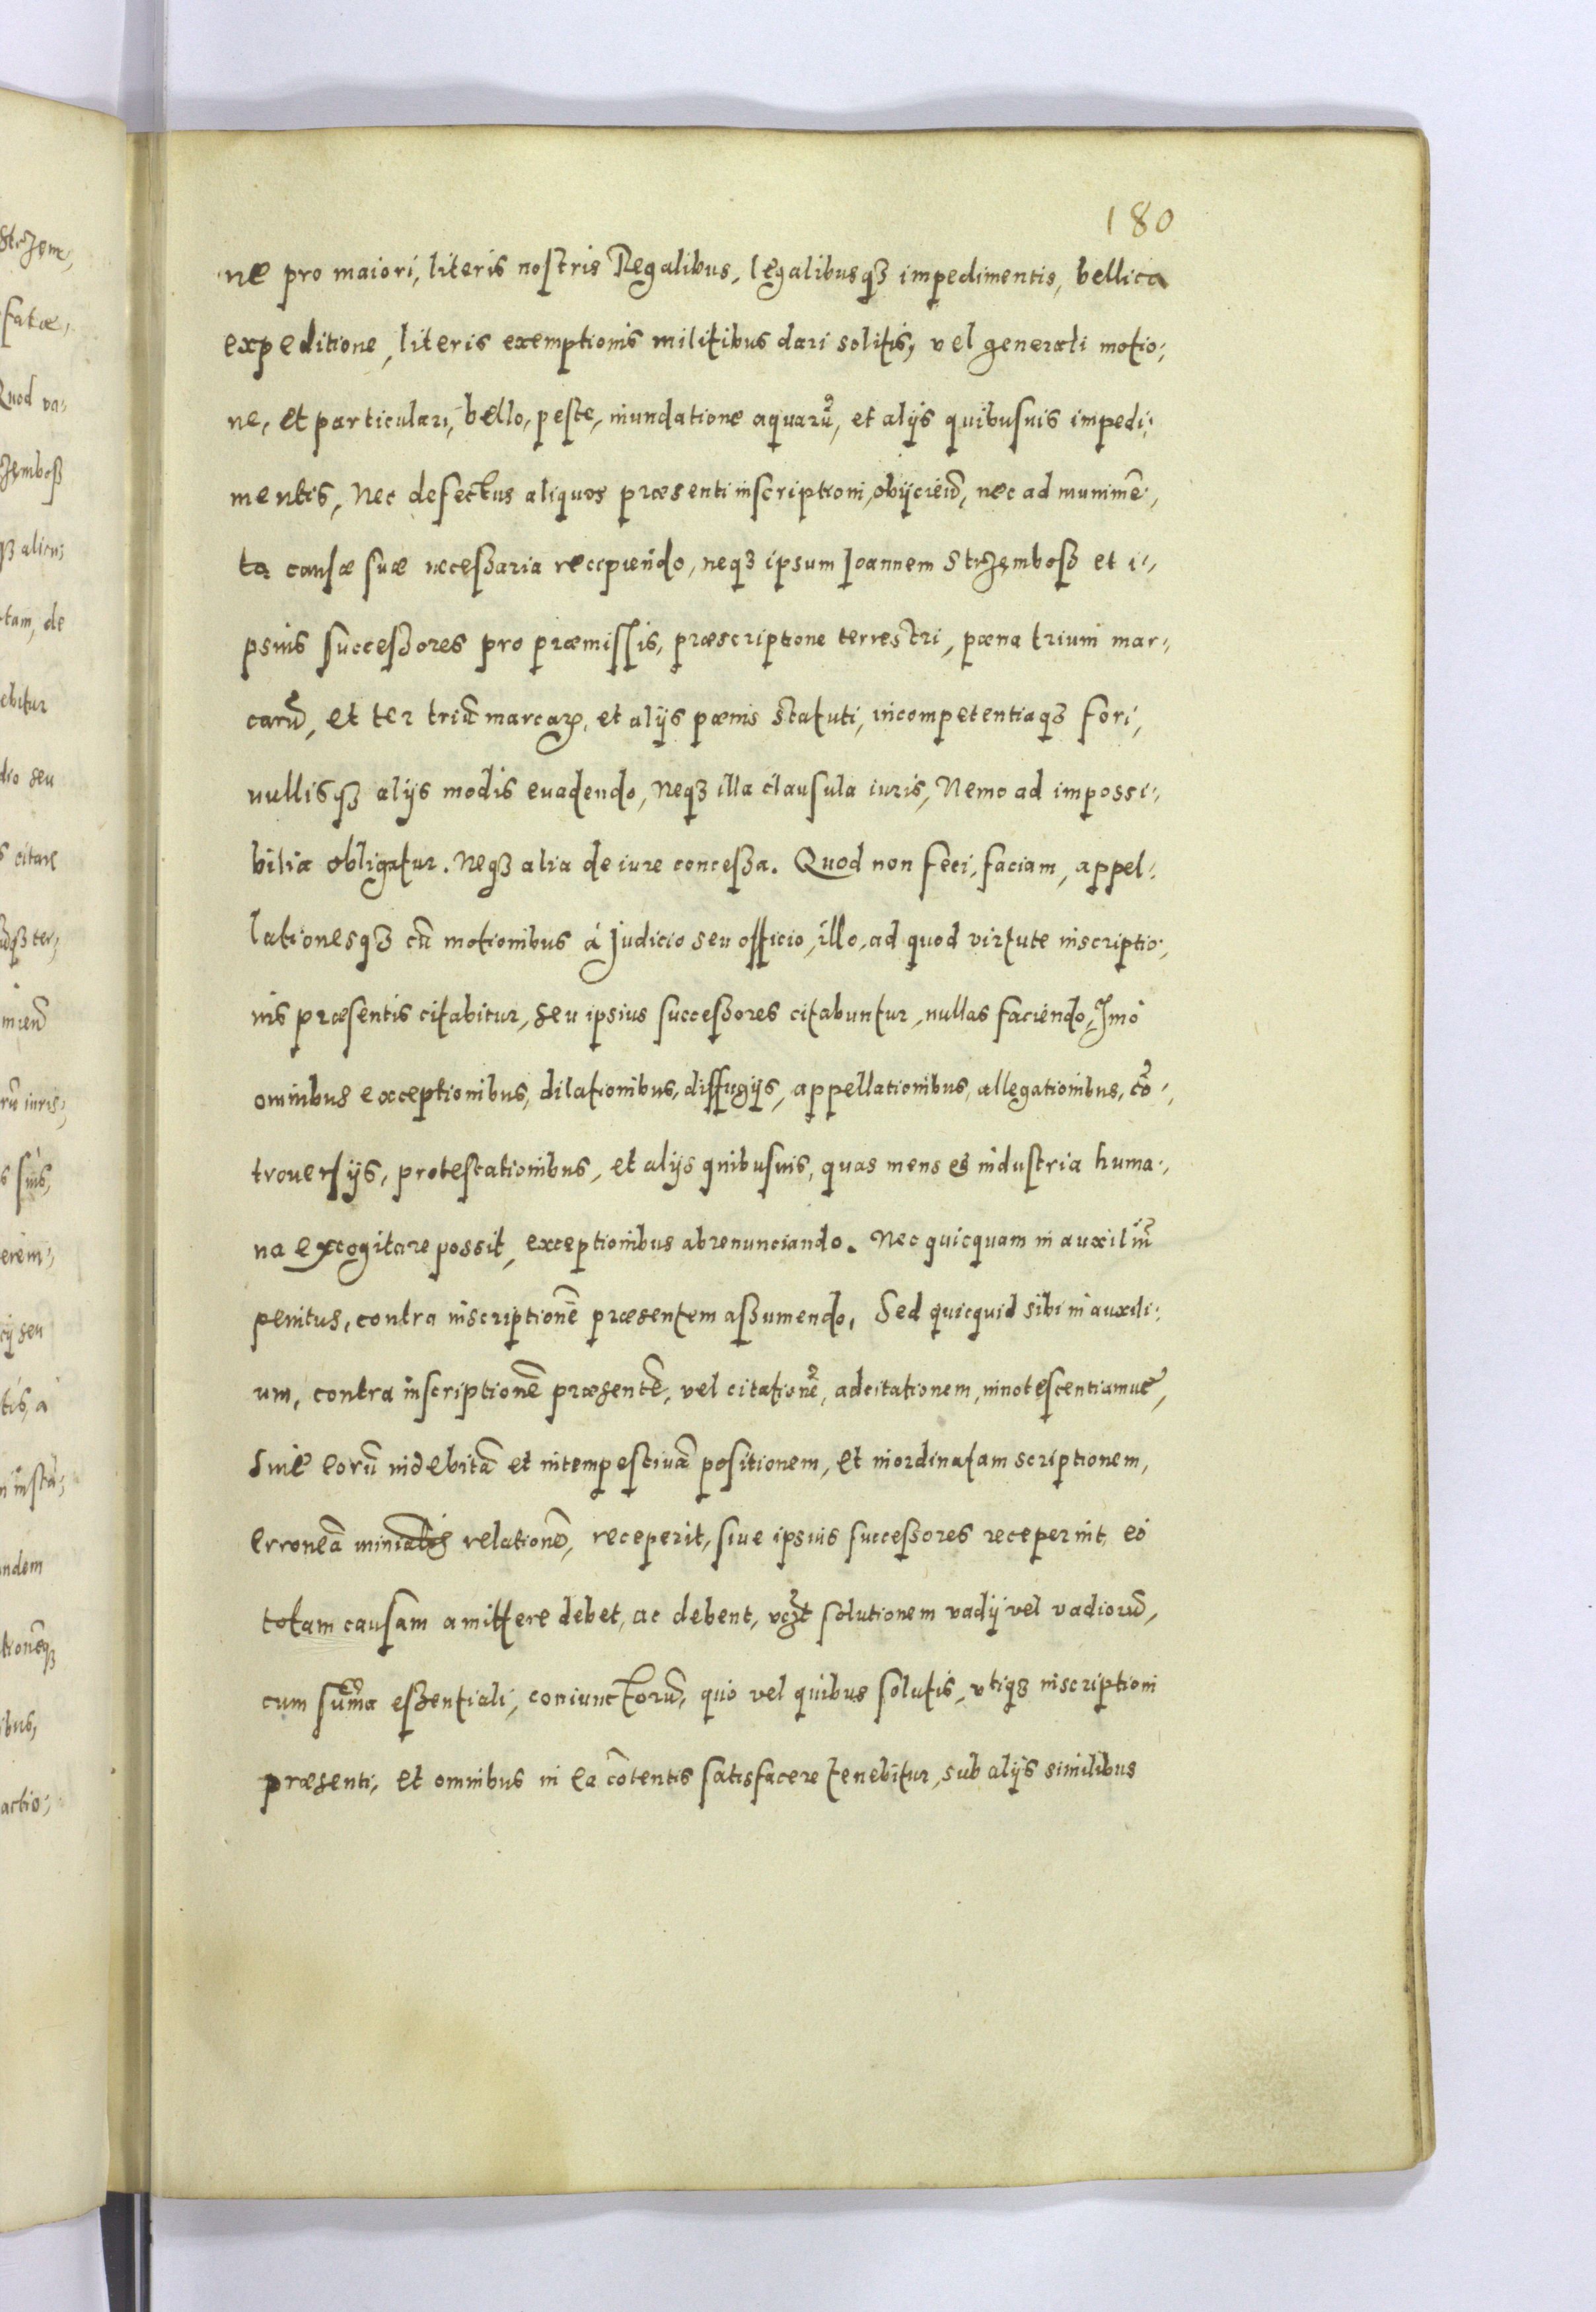 180
ne pro maiori, literis nostris Regalibus, legalibusqꝫ impedimentis, bellica
expeditione, literis exemptionis militibus dari solitis, vel generali motio:
ne, et particulari, bello, peste, inundatione aquarũ, et alijs quibusuis impedi:
mentis, Nec defectus aliquos præsenti inscriptioni, obijciẽd, nec ad munimẽ:
ta causæ suæ necessaria recipiendo, neqꝫ ipsum Joannem Strzemboß et i:
psius successores pro præmissis, præscriptione terrestri, pæna trium mar:
carũ, et ter triũ marcaꝝ, et alijs pænis statuti, incompetentiaqꝫ fori,
nullisqꝫ alijs modis euadendo, Neqꝫ illa clausula iuris, Nemo ad impossi:
bilia obligatur. Neqꝫ alia de iure concessa. Quod non feci, faciam, appel:
lationesqꝫ cũ motionibus á Judicio seu officio, illo, ad quod virtute inscriptio:
nis præsentis citabitur, seu ipsius successores citabuntur, nullas faciendo, Imò
omnibus exceptionibus, dilationibus, diffugijs, appellationibus, allegationibus, cõ:
trouersijs, protestationibus, et alijs quibusuis, quas mens et industria huma:
na excogitare possit, exceptionibus abrenunciando. Nec quicquam in auxiliũ
penitus, contra inscriptionẽ præsentem assumendo, Sed quicquid sibi in auxili:
um, contra inscriptionẽ præsentẽ, vel citationẽ, adcitationem, innotescentiamue,
Siue eorũ indebitã et intempestiuã positionem, et inordinatam scriptionem,
erroneã relationẽ, receperit, siue ipsius successores receperint, eò
totam causam amittere debet, ac debent, solutionem vadij vel vadiorũ,
cum sũma essentiali, coniunctorũ, quo vel quibus solutis, vtiqꝫ inscriptioni
præsenti, et omnibus in ea cõtentis satisfacere tenebitur, sub alijs similibus